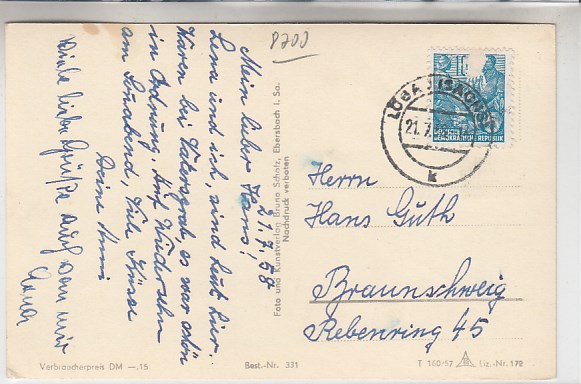 P700
21.7.58
Mein lieber Hans!
Lena und ich, sind heut hier.
Waren bei Vatersgrab, es war schön
in Ordnung. Auf Wiedersehn
am Sonabend, Viele Küsse
Deine Anni
Viele liebe Grüße auch von mir
Lena
Foto und Kunstverlag Bruno Scholz, Ebersbach i. Sa.
Nachdruck verboten
10
DEUTSCHE
DEMOKRATISCHE REPUBLIK
LÖBAU (SACHS)
21.7.
k
Herrn
Hans Güth
Braunschweig
Rebenring 45
Verbraucherpreis DM —,15
Best.-Nr. 331
T 160/57
Liz.-Nr. 179